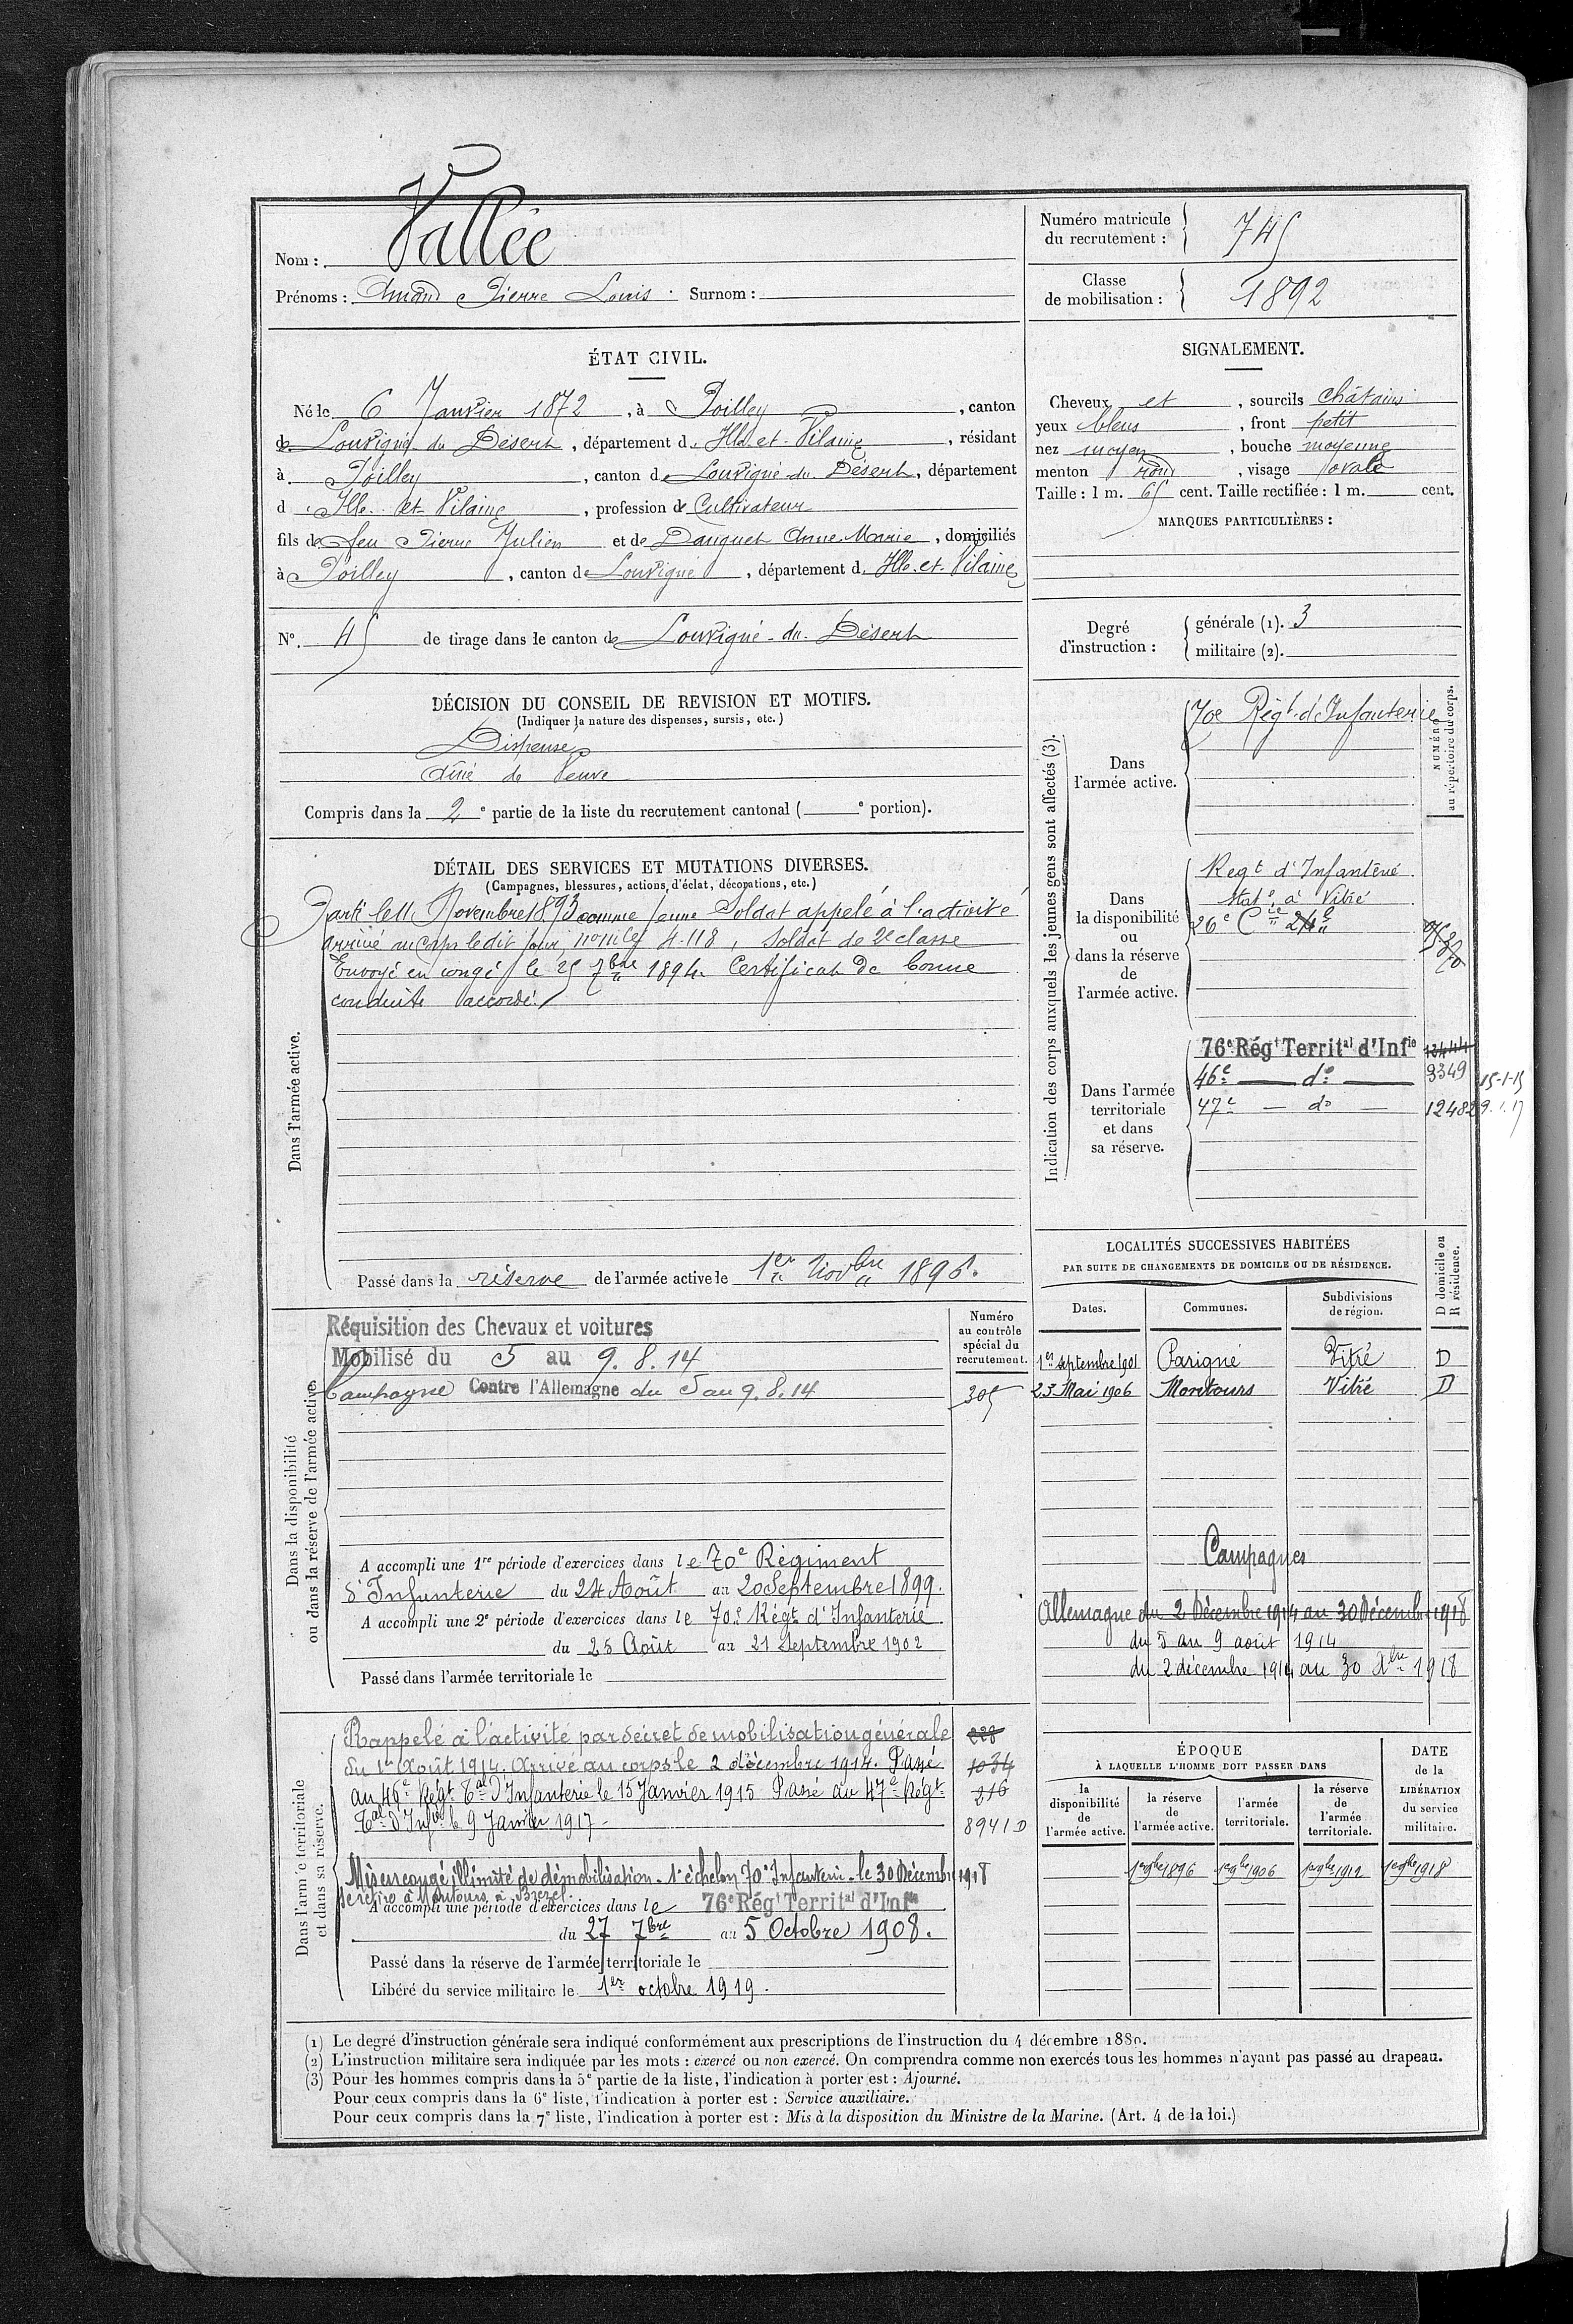 Nom : Vallée
Prénoms : Amand Pierre Louis Surnom :
Numéro matricule du recrutement : 745
Classe de mobilisation : 1892
ÉTAT CIVIL.
Né le 6 Janvier 1872, à Poilley, canton
de Louvigné du Désert, département d. Ille et Vilaine, résidant
à Poilley, canton de Louvigné du Désert, département
d Ille et Vilaine, profession de Cultivateur
fils de feu Pierre Julien et de Danguet Anne Marie, domiciliés
à Poilley, canton de Louvigné, département d. Ille et Vilaine
N° 45 de tirage dans le canton de Louvigné du Désert
SIGNALEMENT.
Cheveux et, sourcils châtains
yeux bleus, front petit
nez moyen, bouche moyenne
menton rond, visage ovale
Taille : 1 m. 65 cent. Taille rectifiée : 1 m. cent.
MARQUES PARTICULIÈRES :
Degré d'instruction :
générale (1). 3
militaire (2).
DÉCISION DU CONSEIL DE REVISION ET MOTIFS.
(Indiquer la nature des dispenses, sursis, etc.)
Dispensé
Aîné de Veuve
Compris dans la 2e partie de la liste du recrutement cantonal ( e portion).
DÉTAIL DES SERVICES ET MUTATIONS DIVERSES.
(Campagnes, blessures, actions, d'éclat, décorations, etc.)
Dans l'armée active.
Parti le 11 Novembre 1893 comme jeune Soldat appelé à l'activité
arrivé au corps le dit jour, no mle 4.118, Soldat de 2e classe
Envoyé en congé le 25 7bre 1894. Certificat de bonne
conduite accordé.
Passé dans la réserve de l'armée active le 1er Novbre 1896.
Indication des corps auxquels les jeunes gens sont affectés (3).
NUMÉRO au répertoire du corps.
Dans l'armée active.
70e Régt d'Infanterie
Dans la disponibilité ou dans la réserve de l'armée active.
Regt d'Infanterie
Stat. à Vitré
26e Cie
Dans l'armée territoriale et dans sa réserve.
76e Régt Territal d'Infie
46e — do — 3349 15-1-15
47e — do — 12482 9.1.17
LOCALITÉS SUCCESSIVES HABITÉES
PAR SUITE DE CHANGEMENTS DE DOMICILE OU DE RÉSIDENCE.
Dates. Communes. Subdivisions de région. D domicile ou R résidence.
1er septembre 1901 Parigné Vitré D
23 Mai 1906 Montours Vitré D
Campagnes
Allemagne du 2 Décembre 1914 au 30 Décembre 1918
du 5 au 9 août 1914
du 2 décembre 1914 au 30 Xbre 1918
Dans la disponibilité ou dans la réserve de l'armée active.
Numéro au contrôle spécial du recrutement.
Réquisition des Chevaux et voitures
Mobilisé du 5 au 9.8.14
Campagne Contre l'Allemagne du 5 au 9.8.14
305
A accompli une 1re période d'exercices dans le 70e Régiment
d'Infanterie du 24 Août au 20 Septembre 1899.
A accompli une 2e période d'exercices dans le 70e Régt d'Infanterie
du 25 Août au 21 Septembre 1902
Passé dans l'armée territoriale le
Dans l'armée territoriale et dans sa réserve.
Rappelé à l'activité par décret de mobilisation générale
du 1er Août 1914. Arrivé au corps le 2 décembre 1914. Passé 1034
au 46e Régt Tal d'Infanterie le 15 Janvier 1915 Passé au 47e Régt 216
Tal d'Infie le 9 Janvier 1917. 8941 D
Mis en congé illimité de démobilisation. 1er échelon 70e Infanterie. le 30 Décembre 1918
se retire à Montours
A accompli une période d'exercices dans le 76e Régt Territal d'Infie
du 27 7bre au 5 Octobre 1908.
Passé dans la réserve de l'armée territoriale le
Libéré du service militaire le 1er octobre 1919.
ÉPOQUE
À LAQUELLE L'HOMME DOIT PASSER DANS
la disponibilité de l'armée active.
la réserve de l'armée active.
l'armée territoriale.
la réserve de l'armée territoriale.
DATE de la LIBÉRATION du service militaire.
1er 9bre 1896 1er 9bre 1906 1er 9bre 1912 1er 9bre 1918
(1) Le degré d'instruction générale sera indiqué conformément aux prescriptions de l'instruction du 4 décembre 1889.
(2) L'instruction militaire sera indiquée par les mots : exercé ou non exercé. On comprendra comme non exercés tous les hommes n'ayant pas passé au drapeau.
(3) Pour les hommes compris dans la 5e partie de la liste, l'indication à porter est : Ajourné.
Pour ceux compris dans la 6e liste, l'indication à porter est : Service auxiliaire.
Pour ceux compris dans la 7e liste, l'indication à porter est : Mis à la disposition du Ministre de la Marine. (Art. 4 de la loi.)